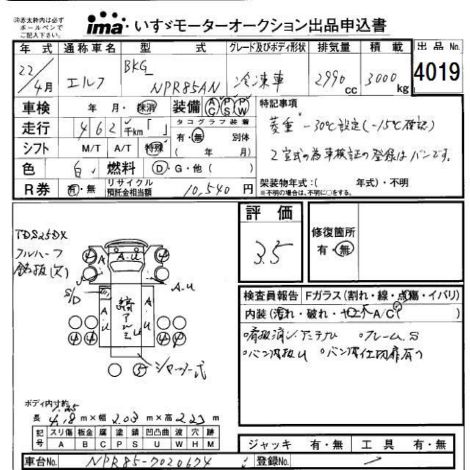 ※赤太枠内は必ず
ボールペンで
ご記入下さい。
ima いすゞモーターオークション出品申込書
年式 通称車名 型式 グレード及びボディ形状 排気量 積載 出品No.
22/4月 エルフ BKG NPR85AN 冷凍車 2990cc 3000kg 4019
車検 年・月・抹消 装備 AC PS PW
走行 462千km タコグラフ装着 有・無 別体
シフト M/T A/T 特殊
色 白 燃料 D・G・他( )
R券 有・無 リサイクル預託金相当額 10,540円
特記事項
菱重 -30℃設定(-15℃確認)
2室式の為車検証の登録はバンです。
架装物年式:( 年式)・不明
※不明の場合は、不明に○をする。
評価 3.5
修復箇所 有・無
TDS25DX
フルハーフ
S/D
シャッター式
検査員報告 Fガラス(割れ・線・点傷・イバリ)
内装(汚れ・破れ・ヤニ・A/C)
ボディ内寸約
長 m×幅 2.03 m×高 2.23 m
記号 スリ傷 板金 腐 塗 錆 凹凸曲 波 穴 跡
A B C P S U W H M
ジャッキ 有・無 工具 有・無
車台No. NPR85-7020674 登録No.